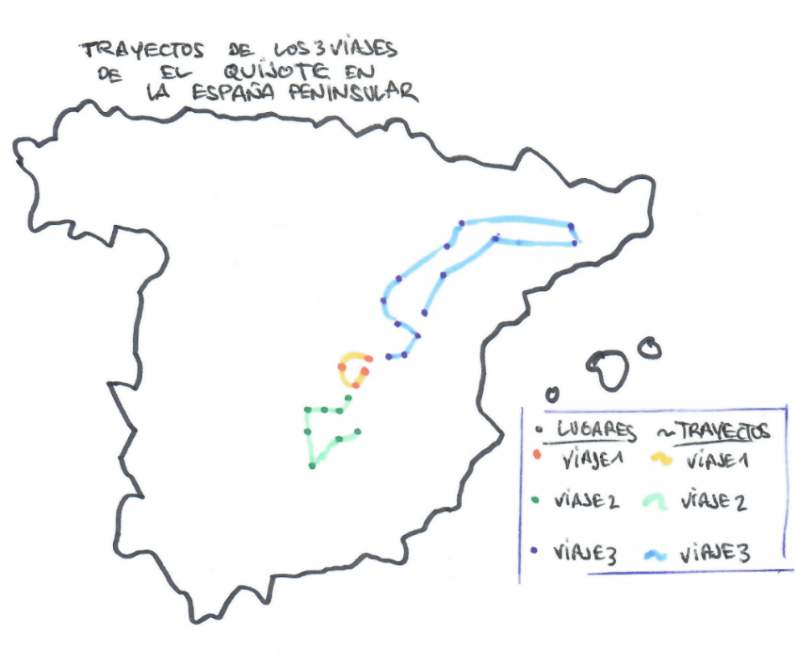 TRAYECTOS DE LOS 3 VIAJES
DE EL QUIJOTE EN
LA ESPAÑA PENINSULAR
• LUGARES ~ TRAYECTOS
• VIAJE1 ~ VIAJE1
• VIAJE2 ~ VIAJE2
• VIAJE3 ~ VIAJE3